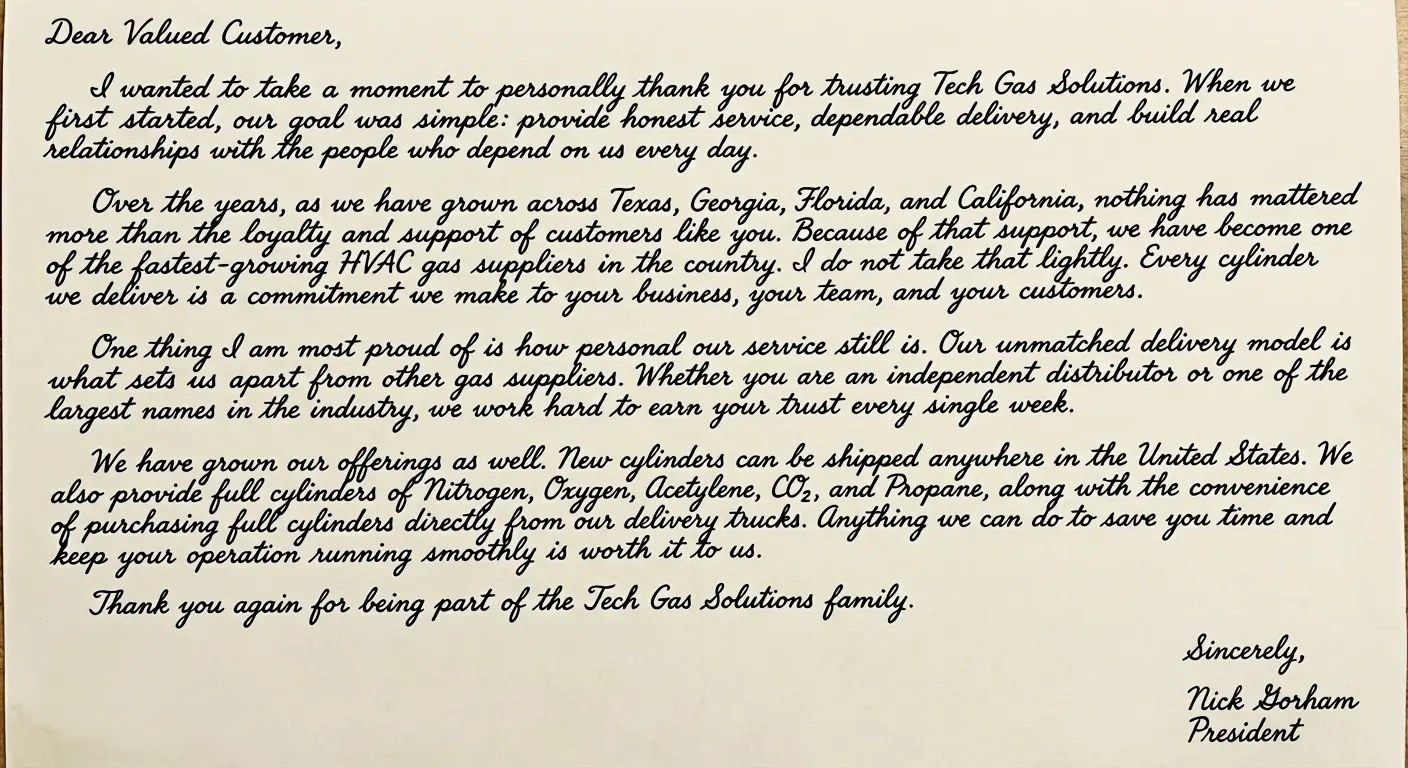 Dear Valued Customer,
I wanted to take a moment to personally thank you for trusting Tech Gas Solutions. When we
first started, our goal was simple: provide honest service, dependable delivery, and build real
relationships with the people who depend on us every day.
Over the years, as we have grown across Texas, Georgia, Florida, and California, nothing has mattered
more than the loyalty and support of customers like you. Because of that support, we have become one
of the fastest-growing HVAC gas suppliers in the country. I do not take that lightly. Every cylinder
we deliver is a commitment we make to your business, your team, and your customers.
One thing I am most proud of is how personal our service still is. Our unmatched delivery model is
what sets us apart from other gas suppliers. Whether you are an independent distributor or one of the
largest names in the industry, we work hard to earn your trust every single week.
We have grown our offerings as well. New cylinders can be shipped anywhere in the United States. We
also provide full cylinders of Nitrogen, Oxygen, Acetylene, CO₂, and Propane, along with the convenience
of purchasing full cylinders directly from our delivery trucks. Anything we can do to save you time and
keep your operation running smoothly is worth it to us.
Thank you again for being part of the Tech Gas Solutions family.
Sincerely,
Nick Gorham
President